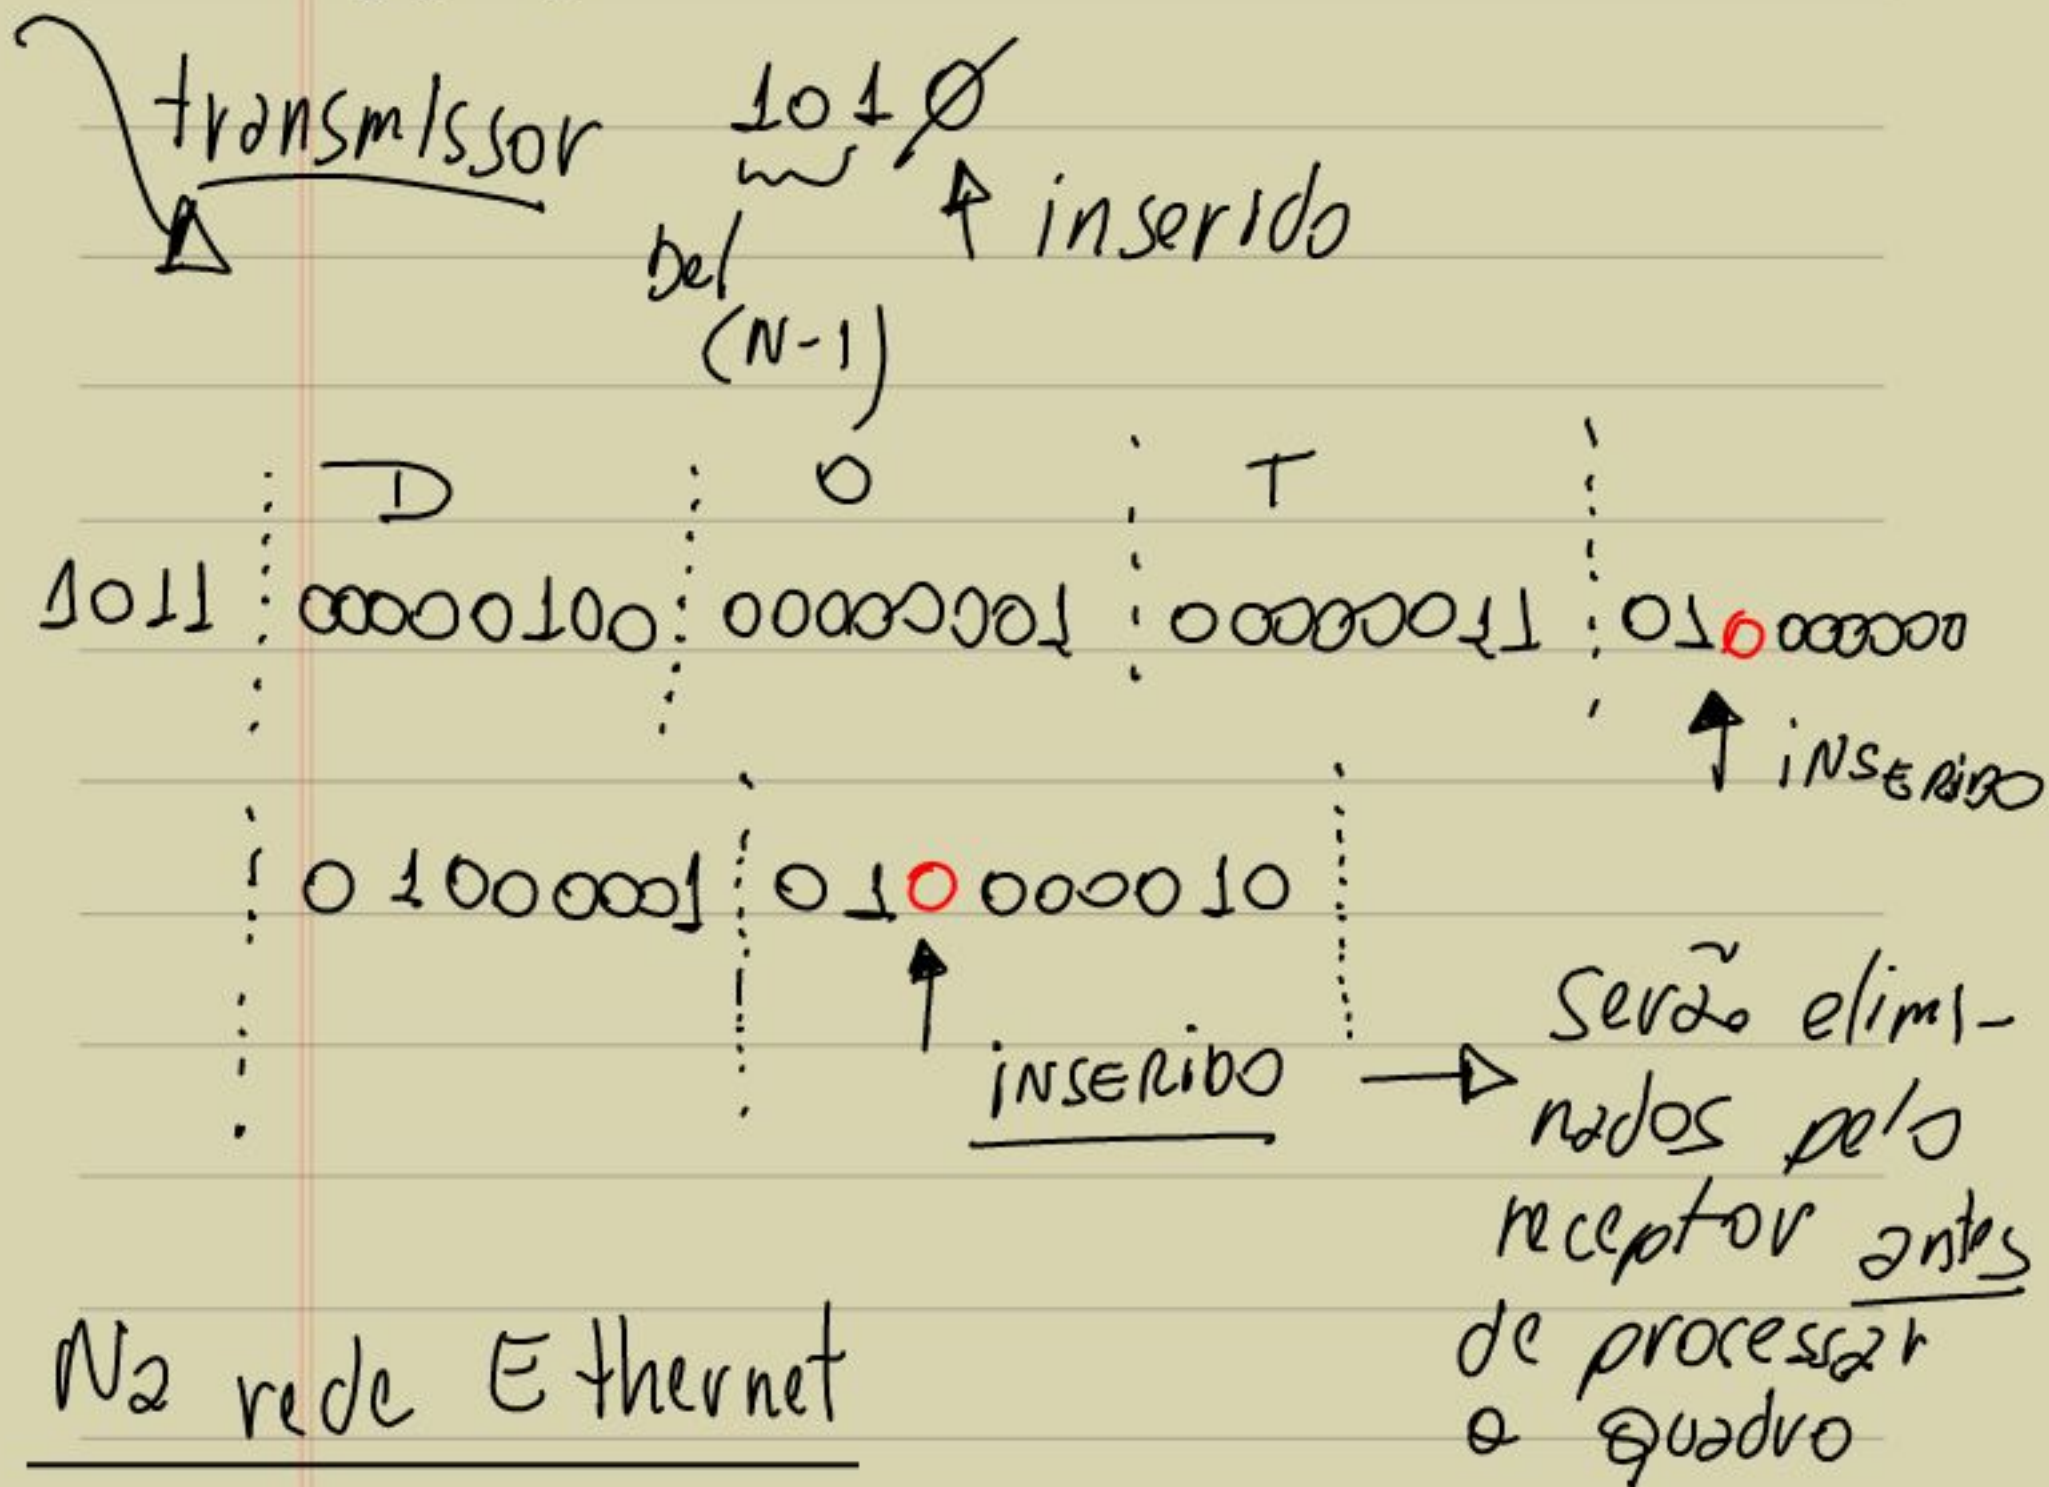 transmissor 101Ø
Del ↑ inserido
(N-1)
D O T
1011 00000100 00000001 00000011 010000000
↑ INSERIDO
01000001 010000010
↑
INSERIDO → Serão elimi-
nados pelo
receptor antes
de processar
o quadro
Na rede Ethernet